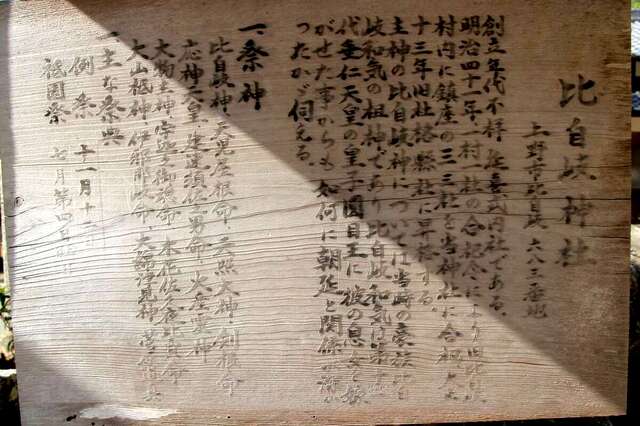 比自岐神社
上野市比自岐六八三番地
創立年代不詳 延喜式内社である。
明治四十一年一村一社の合記念により旧比自岐
村内に鎮座の三三社を当神社に合祀、大正
十三年旧社格縣社に昇格する。
主神の比自岐神については当時の豪族
岐和気の祖神であり比自岐和気は
代垂仁天皇の皇子円目王に彼の息女を嫁
がせた事からも如何に朝廷と関係が深
ったかが伺える。
一、祭神
比自岐神、天児屋根命、三照大神、剣根命
応神天皇、建速須佐男命、火産霊神
大物主神、宇迦之御魂命、木花佐久夜比売命
大山祗神、伊邪那岐命、大綿津見神、菅原道真
一、主な祭典
例祭 十一月十三
祗園祭 七月第四日